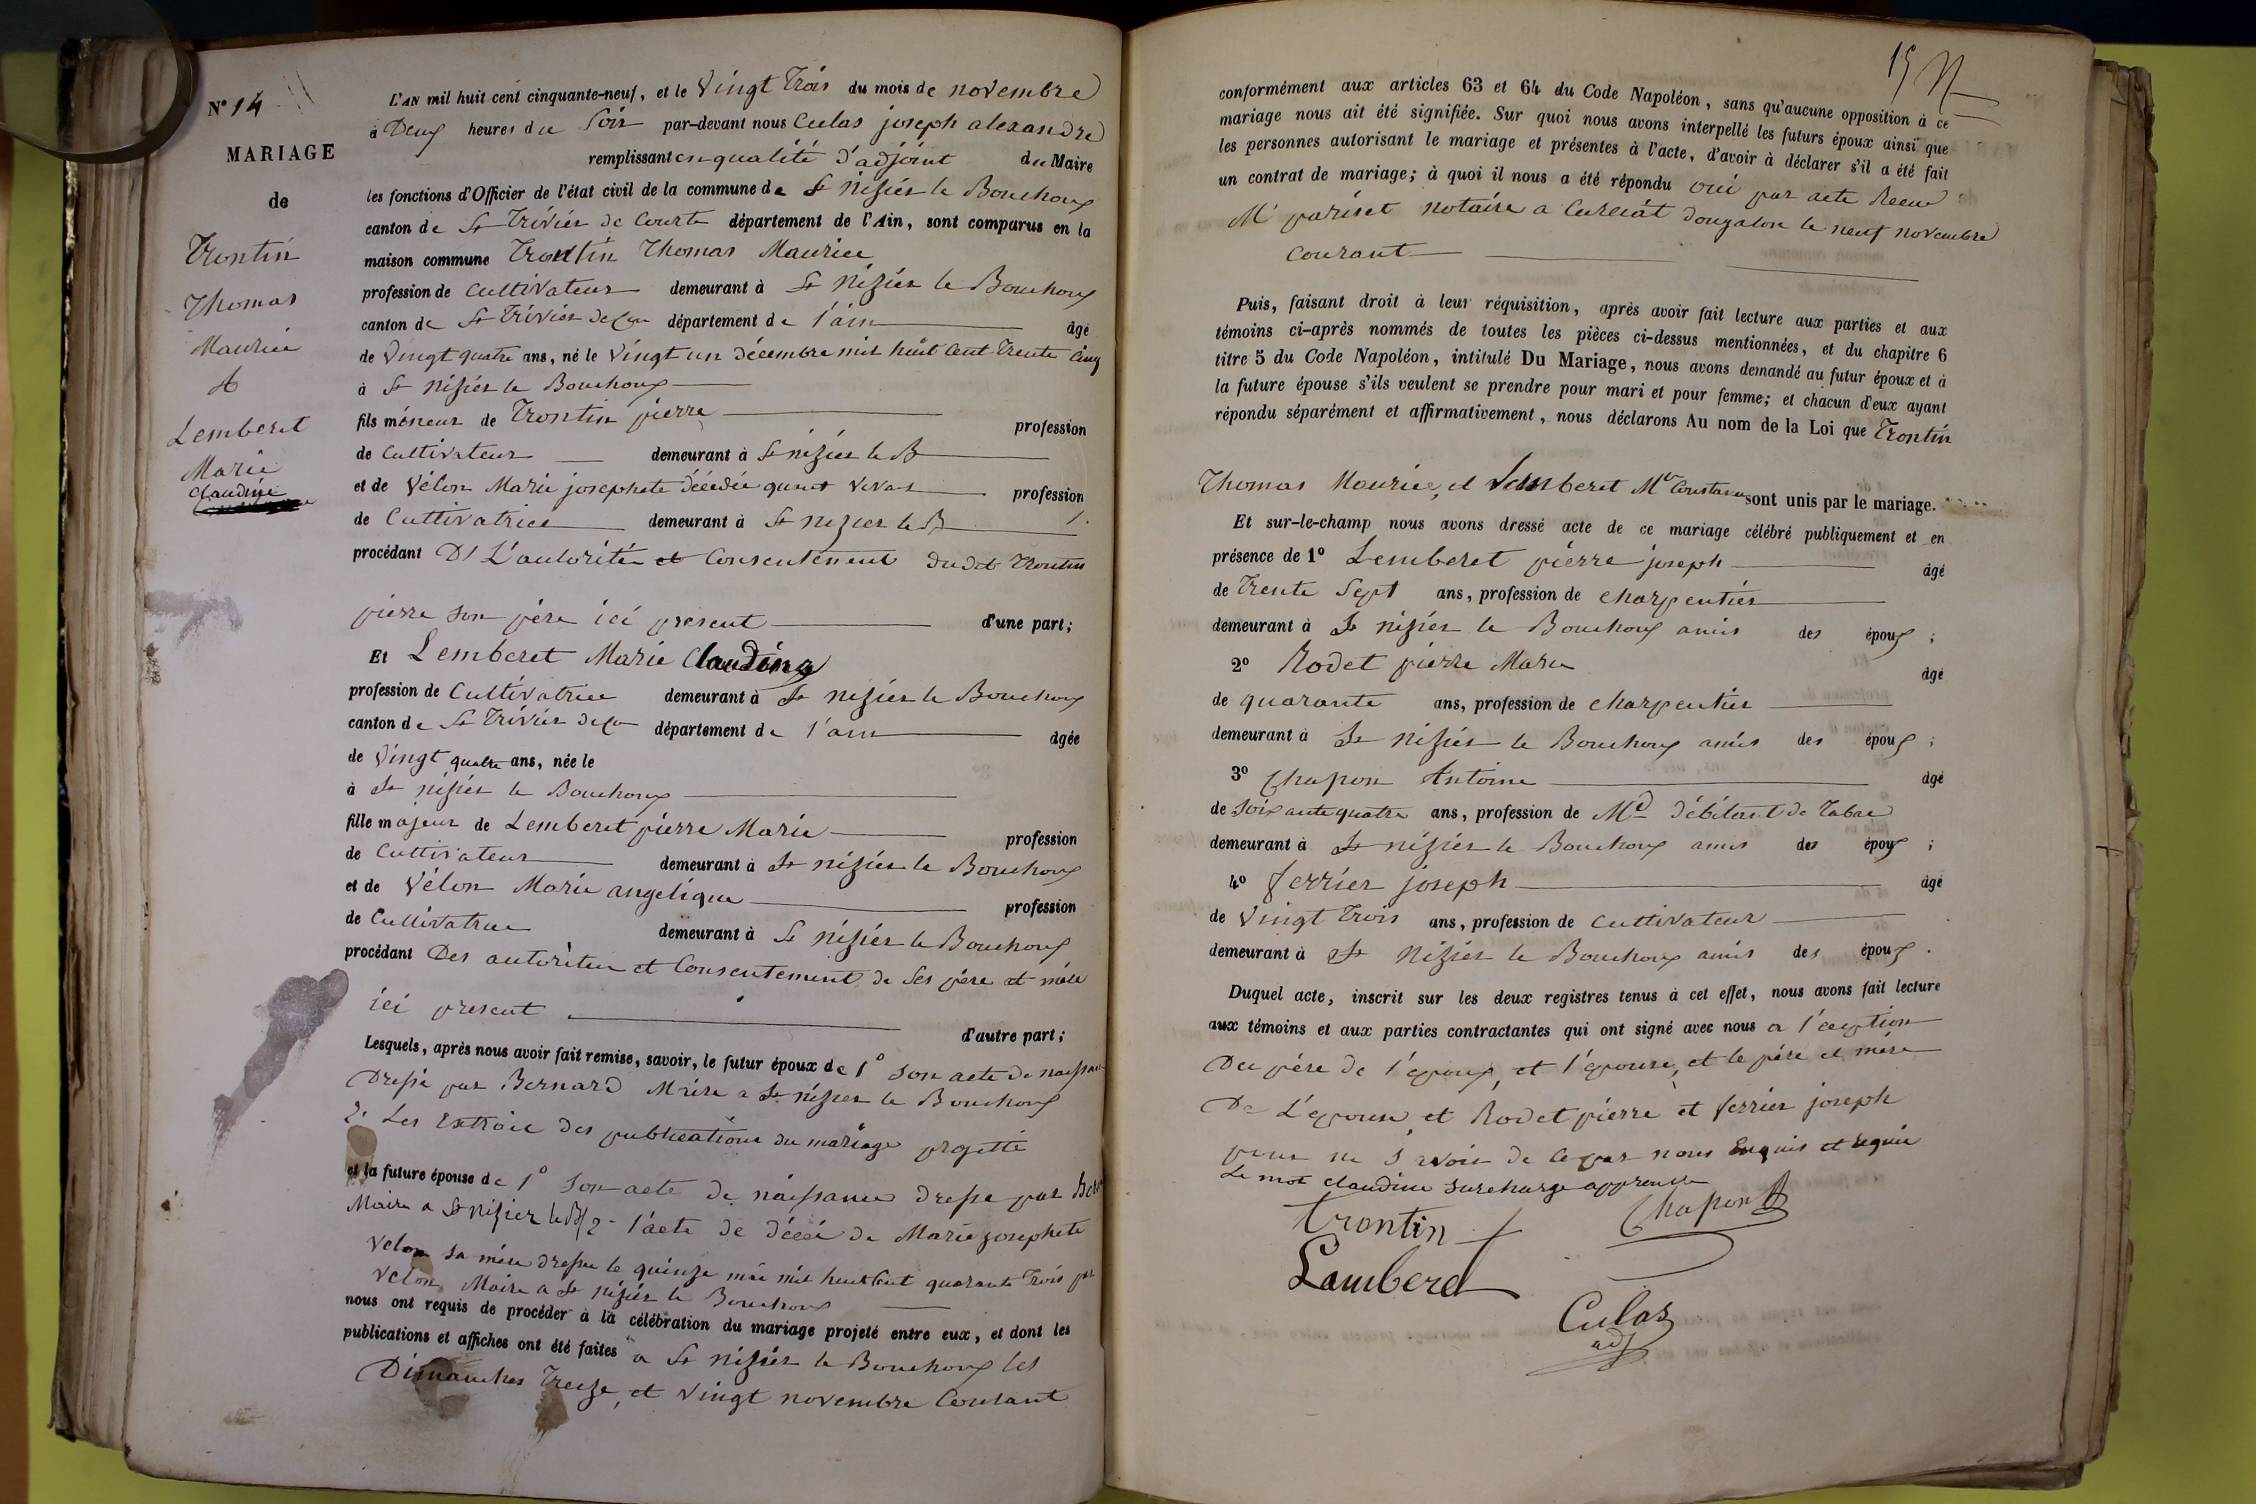 N° 14
MARIAGE
de
Trontin
Thomas
Maurice
&
Lemberet
Marie
Claudine
L'AN mil huit cent cinquante-neuf, et le Vingt Trois du mois de novembre
à Deux heures du Soir par-devant nous Culas joseph alexandre
remplissant en qualité d'adjoint du Maire
les fonctions d'Officier de l'état civil de la commune de St Nizier le Bouchoux
canton de St Trivier de Courte département de l'Ain, sont comparus en la
maison commune Trontin Thomas Maurice
profession de Cultivateur demeurant à St Nizier le Bouchoux
canton de St Trivier de Cou département de l'ain âgé
de Vingt quatre ans, né le Vingt un décembre mil huit Cent Trente Cinq
à St Nizier le Bouchoux
fils mineur de Trontin pierre profession
de Cultivateur demeurant à St nizier le B
et de Vélon Marie josephete décédée quant vivait profession
de Cultivatrice demeurant à St nizier le B
procédant D L'autorité et Consentement dudit Trontin
pierre son père ici présent d'une part;
Et Lemberet Marie Claudine
profession de Cultivatrice demeurant à St nizier le Bouchoux
canton de St Trivier de Co département de l'ain âgée
de Vingt quatre ans, née le
à St nizier le Bouchoux
fille majeur de Lemberet pierre Marie profession
de Cultivateur demeurant à St nizier le Bouchoux
et de Vélon Marie angélique profession
de Cultivatrice demeurant à St Nizier le Bouchoux
procédant Des autorités et Consentement de Ses père et mère
ici présent d'autre part;
Lesquels, après nous avoir fait remise, savoir, le futur époux de 1° Son acte de naissance
Dressé par Bernard Maire a St nizier le Bouchoux
2° Les Extrait des publications du mariage projetté
et la future épouse de 1° Son acte de naissance dressé par Ber
Maire a St nizier le B/ 2 l'acte de décé de Marie josephete
Velon sa mère dressé le quinze mai mil huit Cent quarante Trois par
Velon Maire a St nizier le Bouchoux
nous ont requis de procéder à la célébration du mariage projeté entre eux, et dont les
publications et affiches ont été faites a St nizier le Bouchoux les
Dimanches Treize, et Vingt novembre Courant
15
conformément aux articles 63 et 64 du Code Napoléon, sans qu'aucune opposition à ce
mariage nous ait été signifiée. Sur quoi nous avons interpellé les futurs époux ainsi que
les personnes autorisant le mariage et présentes à l'acte, d'avoir à déclarer s'il a été fait
un contrat de mariage; à quoi il nous a été répondu oui par acte Recu
Me pariset notaire a Curciat Dongalon le neuf novembre
Courant
Puis, faisant droit à leur réquisition, après avoir fait lecture aux parties et aux
témoins ci-après nommés de toutes les pièces ci-dessus mentionnées, et du chapitre 6
titre 5 du Code Napoléon, intitulé Du Mariage, nous avons demandé au futur époux et à
la future épouse s'ils veulent se prendre pour mari et pour femme; et chacun d'eux ayant
répondu séparément et affirmativement, nous déclarons Au nom de la Loi que Trontin
Thomas Maurice, et Lemberet Mie Constance sont unis par le mariage.
Et sur-le-champ nous avons dressé acte de ce mariage célébré publiquement et en
présence de 1° Lemberet pierre joseph âgé
de Trente Sept ans, profession de charpentier
demeurant à St nizier le Bouchoux amis des époux ;
2° Rodet pierre Marie âgé
de quarante ans, profession de charpentier
demeurant à St nizier le Bouchoux amis des époux ;
3° Chapon Antoine âgé
de Soixante quatre ans, profession de Md débitant de Tabac
demeurant à St nizier le Bouchoux amis des époux ;
4° ferrier joseph âgé
de Vingt Trois ans, profession de Cultivateur
demeurant à St Nizier le Bouchoux amis des époux .
Duquel acte, inscrit sur les deux registres tenus à cet effet, nous avons fait lecture
aux témoins et aux parties contractantes qui ont signé avec nous a l'exeption
Du père de l'époux, et l'épouse, et le père et mère
De L'épouse, et Rodet pierre et ferrier joseph
pour ne Savoir de ce par nous Enquis et requis
Le mot claudine surcharge approuvée
Trontin
Chapon A
Lamberet
Culas
adj